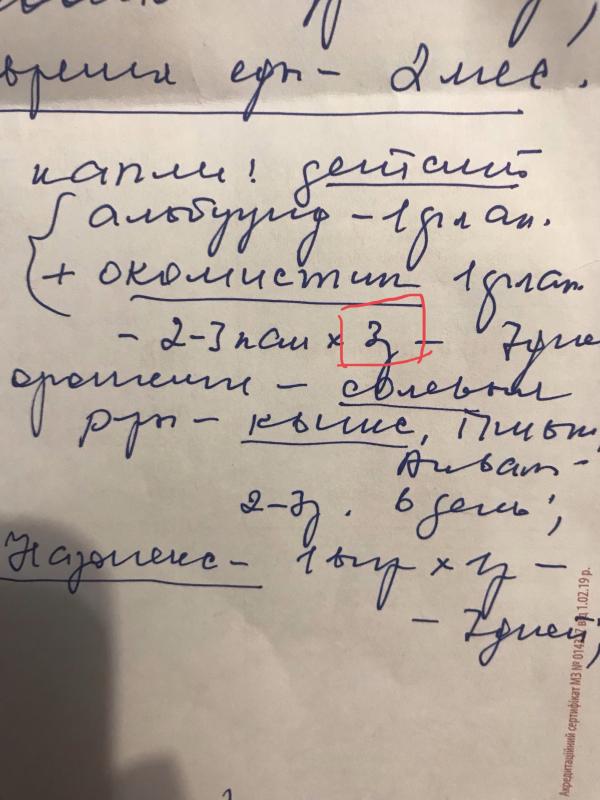 время еды - 2 мес.
капли! детский
альбуцид - 1 флак.
+ окомистин 1 флак
- 2-3 кап х 3 - 7 дне
орошении - солевыл
р-ры - квикс,
Аква
2-3 . в день;
Назонекс - 1 впр х -
- 7 дней,
Акредитаційний сертифікат МЗ № 01437 від 1.02.19 р.